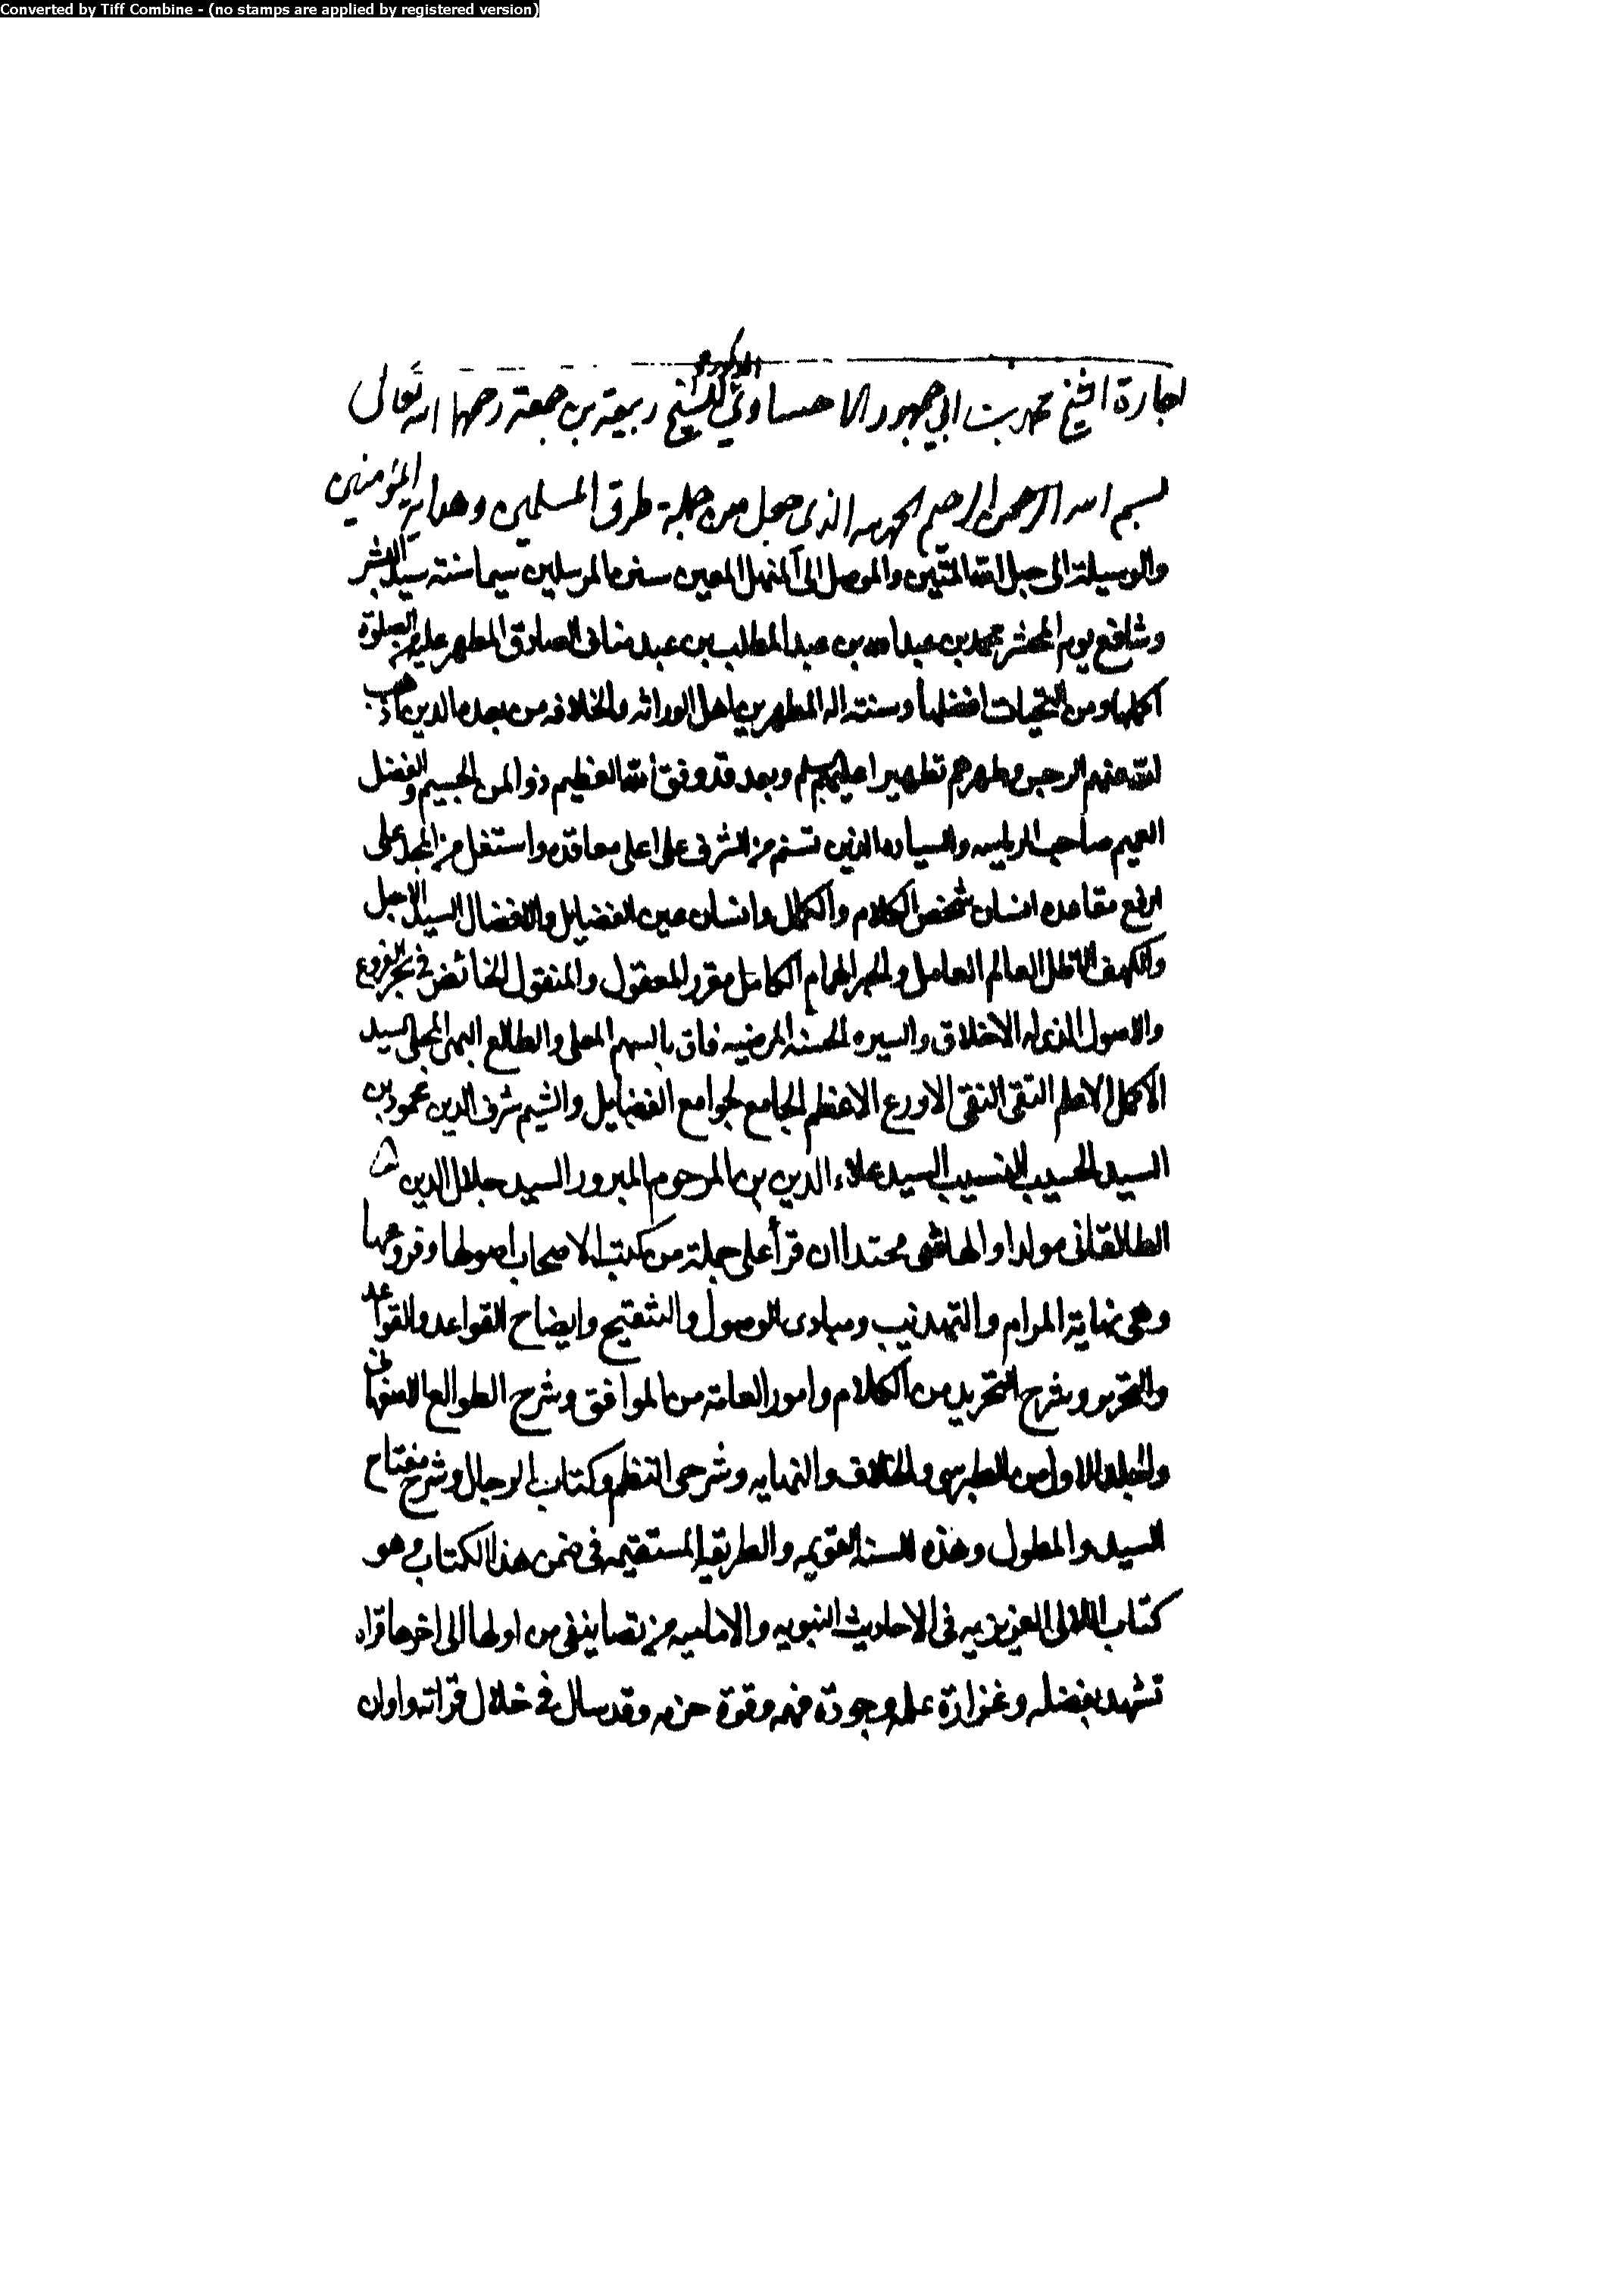 Converted by Tiff Combine - (no stamps are applied by registered version)
المذكور
اجازة الشيخ محمد بن ابي جمهور الاحساوي للشيخ ربيعة بن جمعة رحمهما الله تعالى
بسم الله الرحمن الرحيم الحمد لله الذى جعل من جملة طرق المسلمين وهداية المؤمنين
والوسيلة الى حبل الله المتين والموصل الى المنهل المعين سنن المرسلين سيما سنة سيد البشر
وشافع يوم المحشر محمد بن عبد الله بن عبد المطلب بن عبد مناف الصادق المطهر عليه من الصلوة
اكملها ومن التحيات افضلها وسنته اله المطهرين اهل الوراثه والخلافه من بعده الذين اذهب
الله عنهم الرجس وطهرهم تطهيرا وبعد قد وفق الله العظيم ذو المن الجسيم والفضل
العميم صاحب الرياسه والسياده الذين تسنم من الشرف على اعلى معاقده واستقل من المجد على
ارفع مقاعده انسان شخص الكلام والكمال وانسان عين الفضايل والافضال السيد الاجل
والكهف الاظل العالم العامل والحبر الهمام الكامل مقرر المعقول والمنقول الخائض في بحر الفروع
والاصول الذى له الاخلاق والسيره الحسنه المرضيه فاق بالسهم المعلى والطالع البهى المجلى السيد
الاكمل الاعلم التقى النقى الاورع الاعظم الجامع لجوامع الفضايل والشيم شرف الدين محمود بن
السيد الحسيب النسيب السيد علاء الدين بن المرحوم المبرور السيد جلال الدين
الطالقانى مولدا والهاشمى محتدا ان قرأ على جملة من كتب الاصحاب اصولها وفروعها
وهى نهاية المرام والتهذيب ومبادى الوصول والتنقيح وايضاح القواعد والقواعد
والتحرير وشرح التجريد من الكلام وامور العامة من المواقف وشرح الطوالع الاصفهانى
والمجلد الاول من الطبرسى والخلاف والنهايه وشرحى النظم وكتاب الرجال وشرح مفتاح
السيد والمطول وهذه السنه القويمه والطريقه المستقيمه فى ضمن هذا الكتاب وهو
كتاب اللالى العزيزيه فى الاحاديث النبويه والاماميه من تصانيفى من اولها الى اخرها قراه
تشهد بفضله وغزارة علمه وجودة فهمه وقوة حزمه وقد سال في خلال قراته واوان